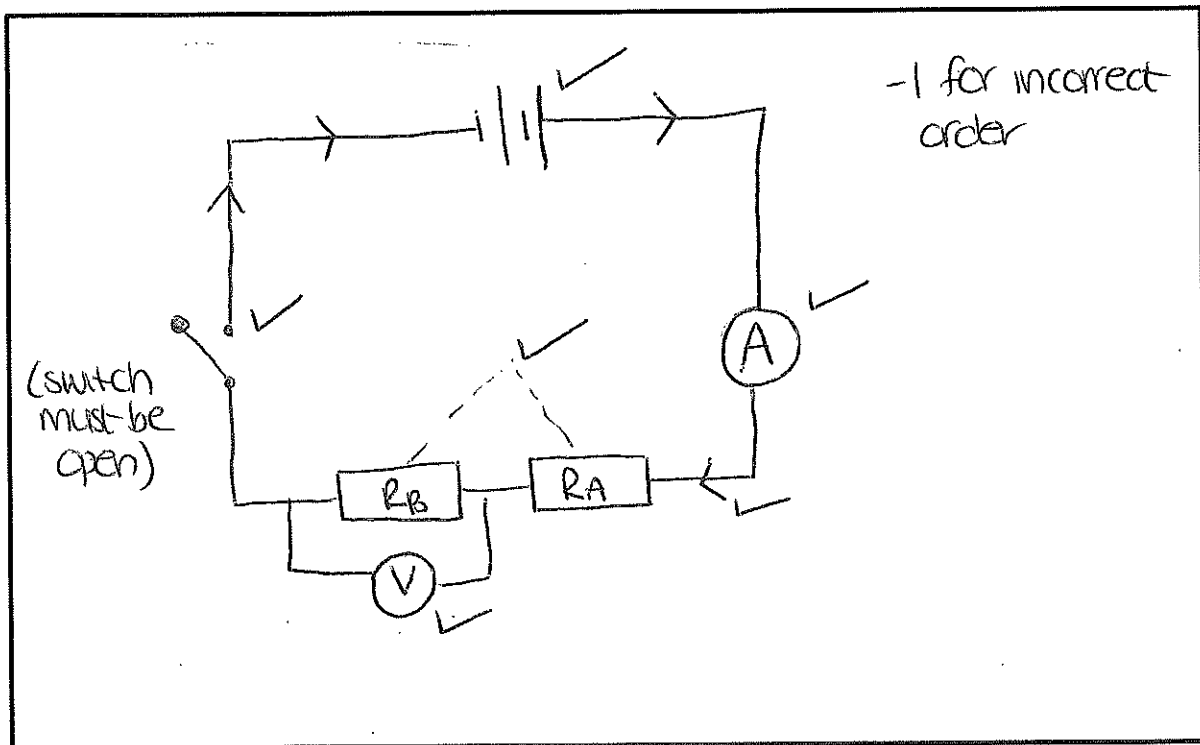 -1 for incorrect
order
A
(switch
must be
open)
RB
RA
V